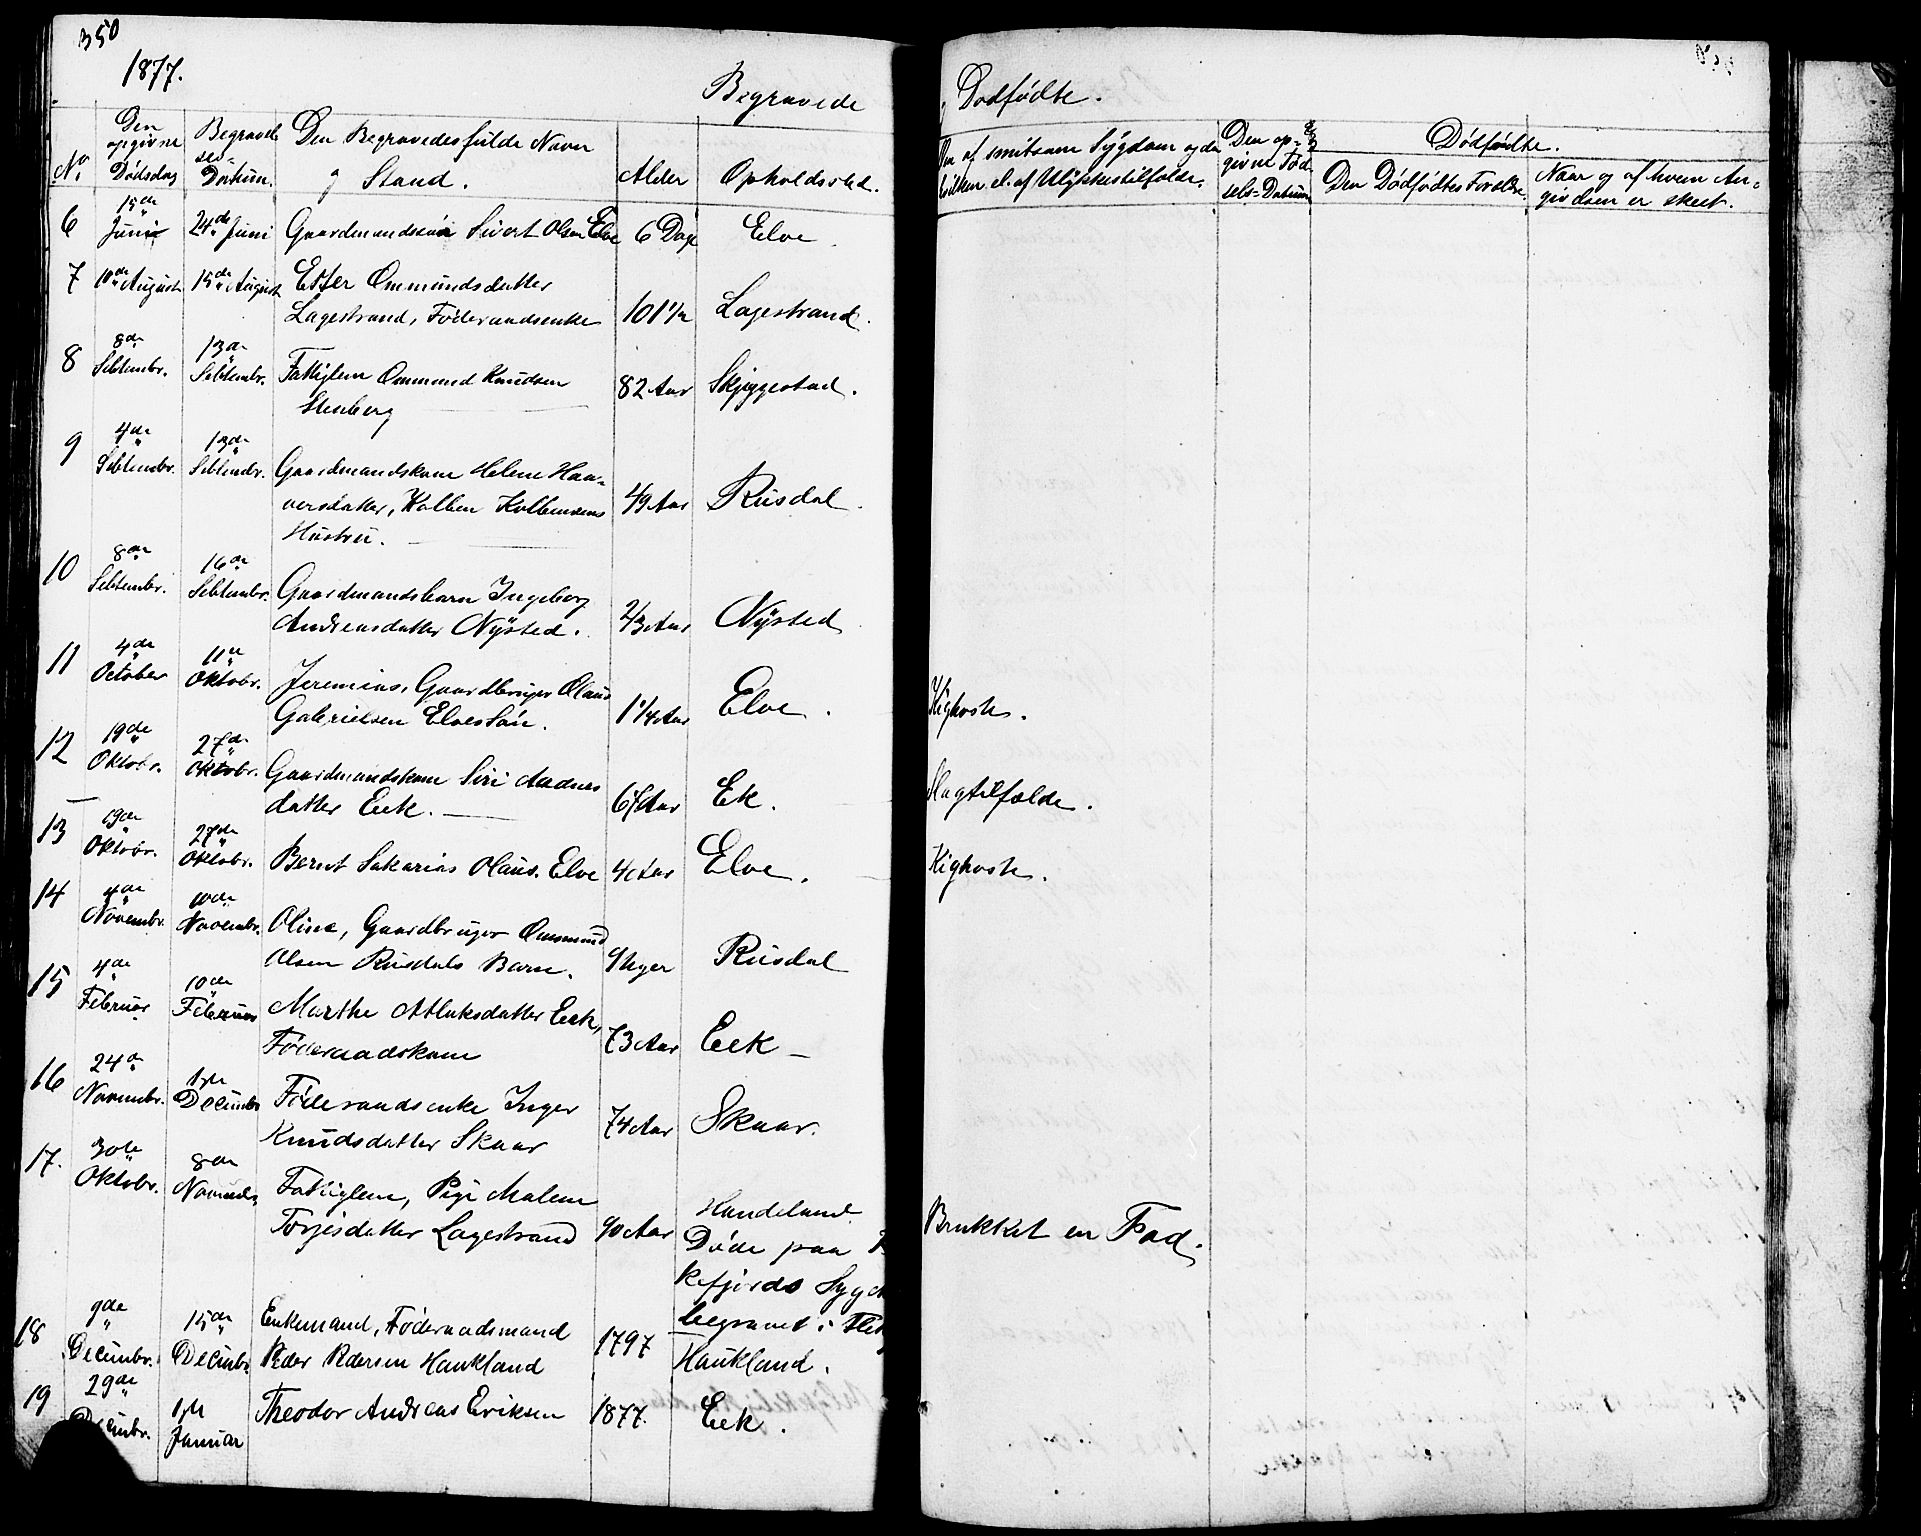 350
1877.
Begravede
Dødfødte.
No
Den opgivne Dødsdag
Begravelses-Datum.
Den Begravedes fulde Navn
og Stand.
Alder
Opholdssted.
af smitsom Sygdom og da
hvilken el. af Ulykkestilfælde.
Den opgivne Fødsels-Datum
Dødfødte.
Den Dødfødtes Forældre.
Naar og af hvem Angivelsen er skeet.
6 15de Juni 24de Juni Gaardmandssøn Sivert Olsen Elve 6 Dage Elve.
7 10de August 15de August Ester Ommundsdatter
Lagestrand, Føderaadsenke 101 1/2 Lagestrand.
8 8de Septembr. 13de Septembr. Fattiglem Ommund Knudsen
Stenberg 82 Aar Skjeggestad.
9 4de Septembr. 13de Septembr. Gaardmandskone Helene Haa-
versdatter, Kolben Kolbensens
Hustru. 49 Aar Rusdal.
10 8de Septembr. 16de Septembr. Gaardmandsbarn Ingeborg
Andreasdatter Nÿsted. 2/3 Aar Nÿsted
11 4de October 11te Oktobr. Jeremias, Gaardbruger Olaus
Gabrielsen Elves Søn. 1 1/4 Aar Elve. Kighoste.
12 19de Oktobr. 27de Oktobr. Gaardmandskone Siri Aadnes
datter Eek. Aar Ek. Slagtilfælde.
13 19de Oktobr. 27de Oktobr. Bernt Sakarias Olaus. Elve 4 Aar Elve. Kighoste.
14 4de Novembr. 10de Novembr. Oline, Gaardbruger Ommund
Olsen Rusdals Barn. Uger Rusdal
15 4de Februar 10de Februar Marthe Atlaksdatter Eek,
Føderaadskone 73 Aar Eek
16 24de Novembr. 1ste Decembr Føderaadsenke Inger
Knudsdatter Skaar 74 Aar Skaar.
17. 30te Oktobr. 8de Novembr. Fattiglem, Pige Malene
Torjesdatter Lagestrand 90 Aar Handeland.
Døde paa
kefjords Syge
begravet i Flek
Brukket en Fod.
18 9de Decembr. 15de Decembr. Enkemand, Føderaadsmand
Peder Pedersen Haukland 1797 Haukland.
19 29de Decembr. 1ste Januar Theodor Andreas Eriksen 1877. Eek.